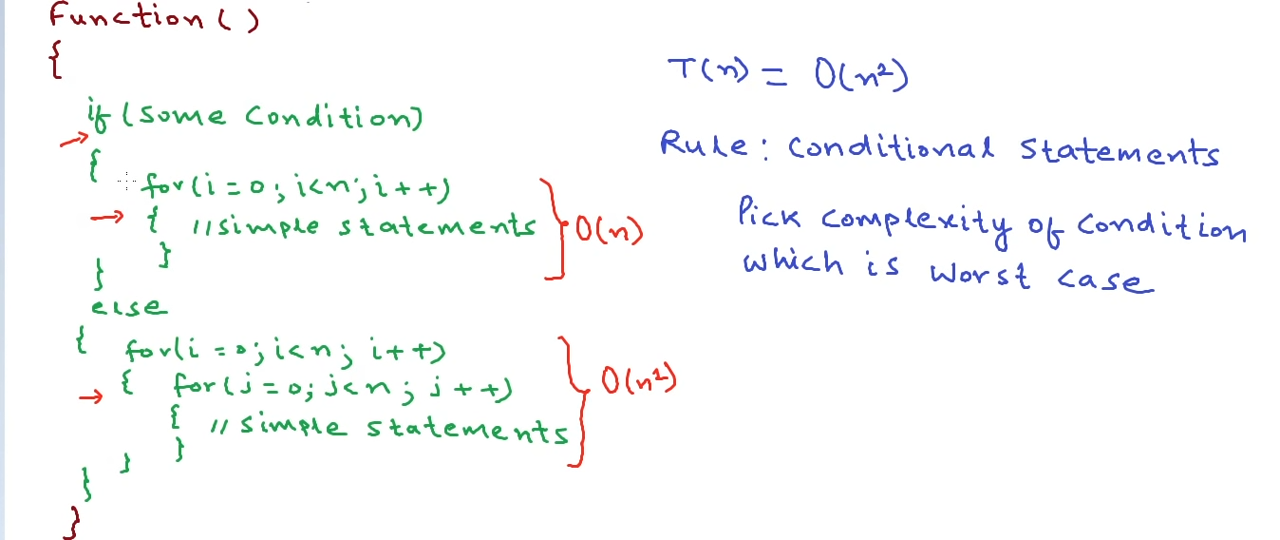 Function()
{
if (some condition)
{
for(i=0; i<n; i++)
{ //simple statements
}
}
else
{ for(i=0; i<n; i++)
{ for(j=0; j<n; j++)
{ // simple statements
}
}
}
}
O(n)
O(n²)
T(n) = O(n²)
Rule: conditional statements
Pick complexity of condition
which is worst case